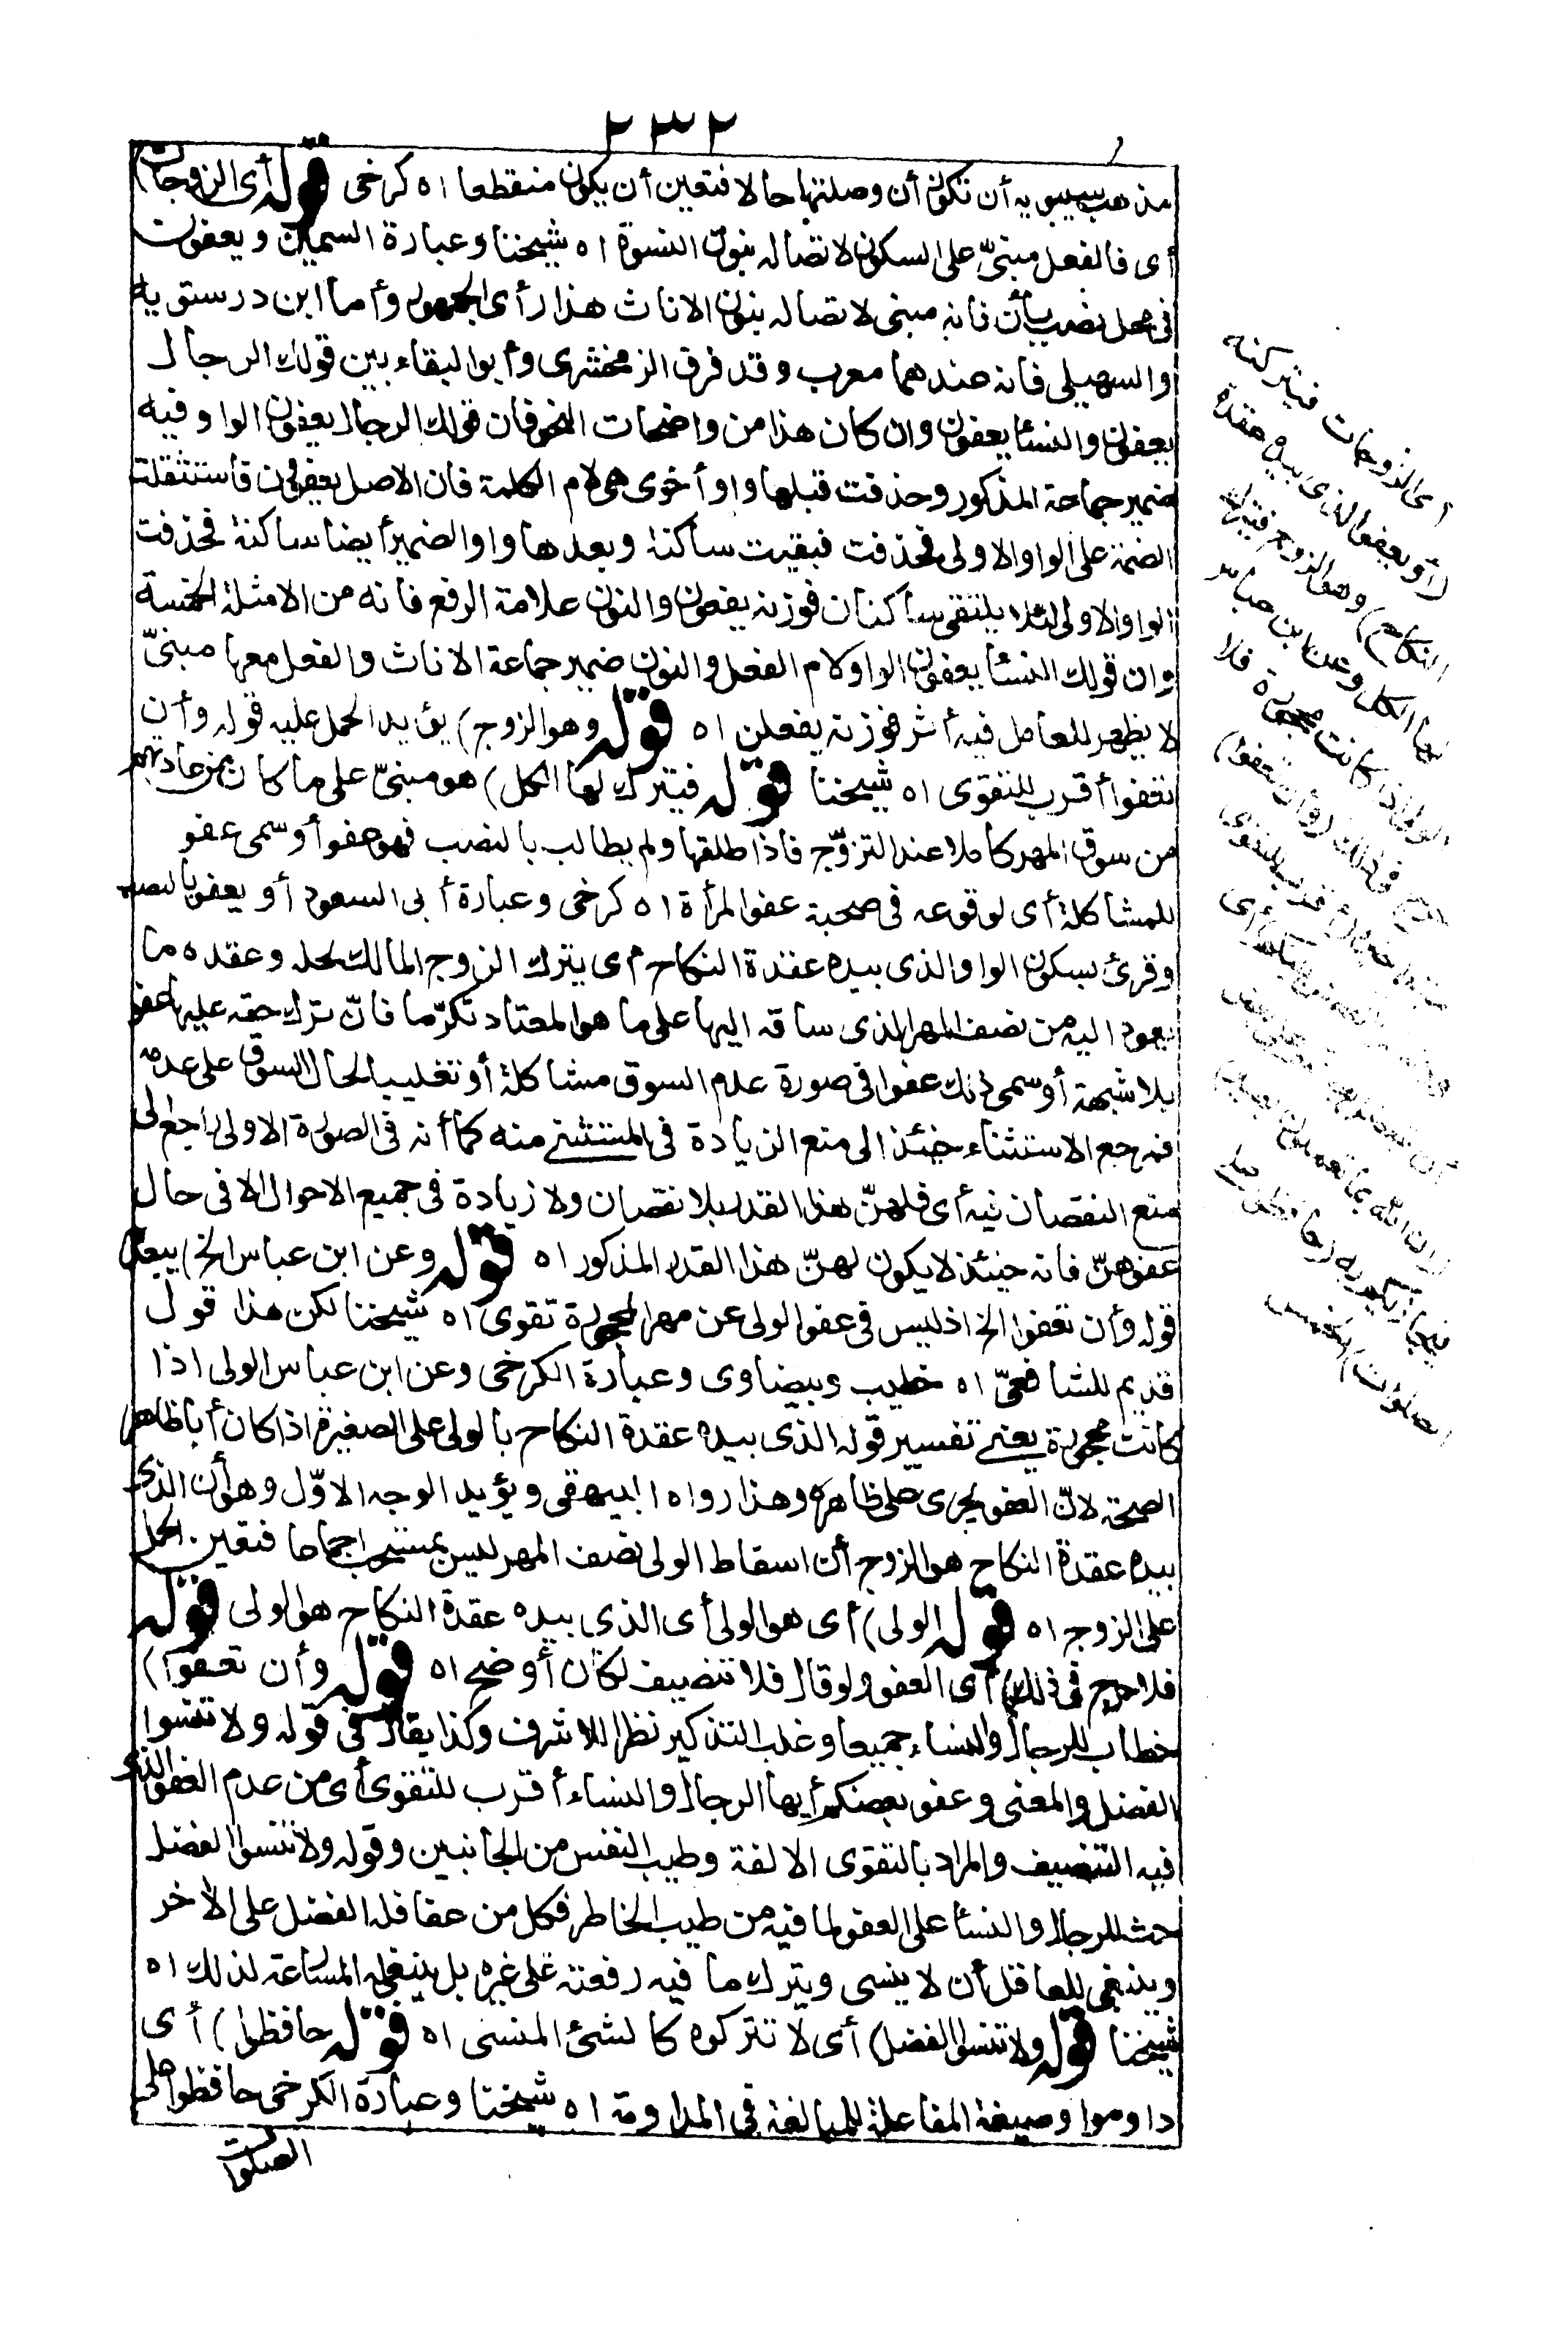 ٢٣٢
مذهب سيبويه أن تكون أن وصلتها حالا فتعين أن يكون منقطعا اه كرخى قوله أى الزوجات)
أى فالفعل مبنىّ على السكون لاتصاله بنون النسوة اه شيخنا وعبارة السمين ويعفون
فى محل نصب بأن فانه مبنى لاتصاله بنون الاناث هذا رأى الجمهور وأما ابن درستويه
والسهيلى فانه عندهما معرب وقد فرق الزمخشرى وأبو البقاء بين قولك الرجال
يعفون والنسأ يعفون وان كان هذا من واضحات النحو فان قولك الرجال يعفون الواو فيه
ضمير جماعة المذكور وحذفت قبلها واو أخرى هى لام الكلمة فان الاصل يعفوون فاستثقلت
الضمة على الواو الاولى فحذفت فبقيت ساكنة وبعدها واو الضمير أيضا ساكنة فحذفت
الواو الاولى لئلا يلتقى ساكنان فوزنه يفعون والنون علامة الرفع فانه من الامثلة الخمسة
وان قولك النسأ يعفون الواو لام الفعل والنون ضمير جماعة الاناث والفعل معها مبنىّ
لا يظهر للعامل فيه أثر فوزنه يفعلن اه قوله وهو الزوج) يؤيد الحمل عليه قوله وأن
تعفوا أقرب للتقوى اه شيخنا قوله فيترك لها الكل) هو مبنىّ على ما كان من عادتهم
من سوق المهر كاملا عند التزوّج فاذا طلقها ولم يطالب بالنصف فهو عفو أو سمى عفو
للمشاكلة أى لوقوعه فى صحبة عفو المرأة اه كرخى وعبارة أبى السعود أو يعفو بالنصب
وقرئ بسكون الواو الذى بيده عقدة النكاح أى يترك الزوج المالك لحله وعقده ما
يعود اليه من نصف المهر الذى ساقه اليها على ما هو المعتاد تكرّما فانّ ترك حقه عليها عفو
بلا شبهة أو سمى ذلك عفوا فى صورة عدم السوق مشاكلة أو تغليبا لحال السوق على عدمه
فمرجع الاستثناء حينئذ الى منع الزيادة فى المستثنى منه كما أنه فى الصورة الاولى راجع الى
منع النقصان فيه أى فلهنّ هذا القدر بلا نقصان ولا زيادة فى جميع الاحوال الا فى حال
عفوهنّ فانه حينئذ لا يكون لهنّ هذا القدر المذكور اه قوله وعن ابن عباس الخ) يبعده
قوله وأن تعفوا الخ اذ ليس فى عفو الولى عن مهر المحجورة تقوى اه شيخنا لكن هذا قول
قديم للشافعىّ اه خطيب وبيضاوى وعبارة الكرخى وعن ابن عباس الولى اذا
كانت محجورة يعنى تفسير قوله الذى بيده عقدة النكاح بالولى على الصغيرة اذا كان أبا ظاهر
الصحة لانّ العفو يجرى على ظاهره وهذا رواه البيهقى ويؤيد الوجه الاوّل وهو أن الذى
بيده عقدة النكاح هو الزوج أن اسقاط الولى نصف المهر ليس بمستحب اجماعا فتعين الحمل
على الزوج اه قوله الولى) أى هو الولى أى الذى بيده عقدة النكاح هو الولى قوله
فلا حرج فى ذلك) أى العفو ولو قال فلا تنصيف لكان أوضح اه قوله وأن تعفوا)
خطاب للرجال والنساء جميعا وغلب التذكير نظرا للاشرف وكذا يقال فى قوله ولا تنسوا
الفضل والمعنى وعفو بعضكم أيها الرجال والنساء أقرب للتقوى أى من عدم العفو الذى
فيه التنصيف والمراد بالتقوى الالفة وطيب النفس من الجانبين وقوله ولا تنسوا الفضل
حث للرجال والنسأ على العفو لما فيه من طيب الخاطر فكل من عفا فله الفضل على الآخر
وينبغى للعاقل أن لا ينسى ويترك ما فيه رفعته على غيره بل ينبغى له المسارعة لذلك اه
شيخنا قوله ولا تنسوا الفضل) أى لا تتركوه كالشئ المنسى اه قوله حافظوا) أى
داوموا وصيغة المفاعلة للمبالغة فى المداومة اه شيخنا وعبارة الكرخى حافظوا على
الصلوات
أى الزوجات فيتركنه
(أو يعفو الذى بيده عقدة
النكاح) وهو الزوج فيترك
لها الكل وعن ابن عباس
الولى اذا كانت محجورة فلا
حرج فى ذلك (وأن تعفوا)
أقرب للتقوى
أن
(ان الله بما تعملون بصير)
فيجازيكم به (حافظوا على
الصلوات) الخمس